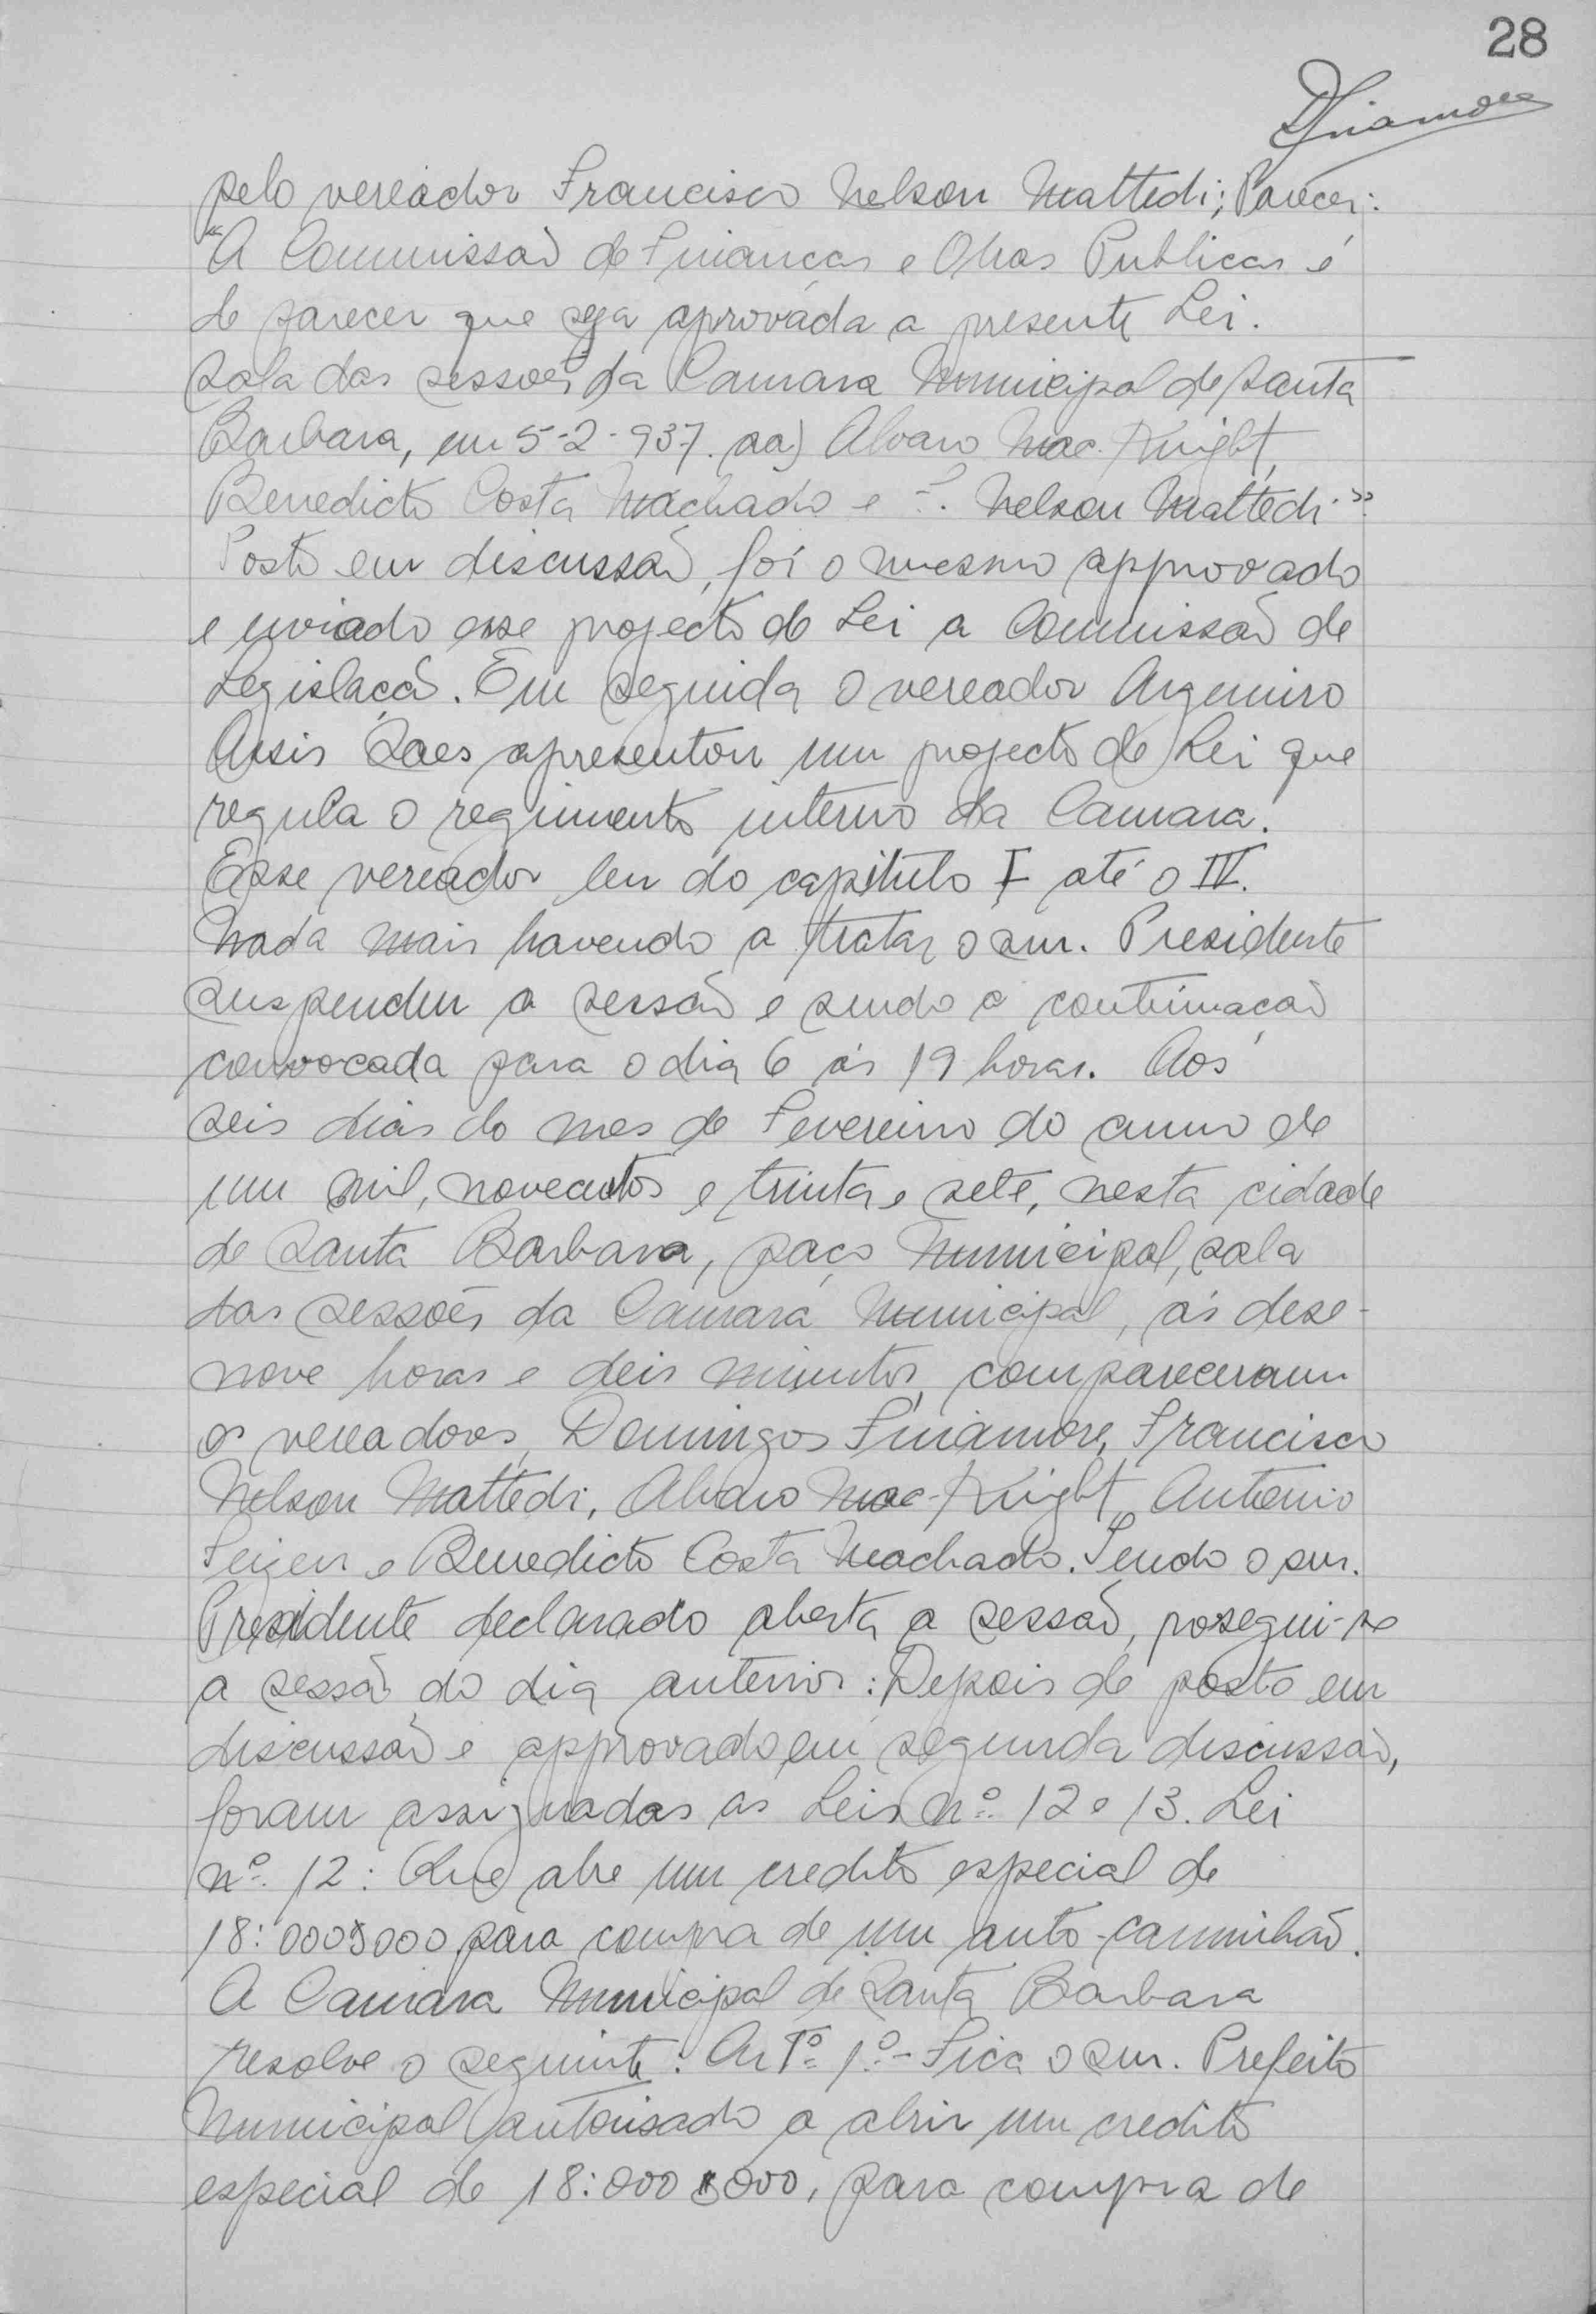 28
DFinamore
pelo vereador Francisco Nelson Mattedi; Parecer:
"A Commissão de Finanças e Obras Publicas é
de parecer que seja aprováda a presente Lei.
Sala das sessões da Camara Municipal de Santa
Barbara, em 5-2-937. aa) Alvaro Mac-Knight,
Benedicto Costa Machado e F. Nelson Mattedi."
Posto em discussão, foi o mesmo approvado
e enviado esse projecto de Lei a Commissão de
Legislação. Em seguida o vereador Argemiro
Assis Saes apresentou um projecto de Lei que
regula o regimento interno da Camara.
Esse vereador leu do capitulo I até o IV.
Nada mais havendo a tratar o snr. Presidente
suspendeu a sessão e sendo a continuação
convocada para o dia 6 ás 19 horas. Aos
seis dias do mes de Fevereiro do anno de
um mil, novecentos e trinta e sete, nesta cidade
de Santa Barbara, paço Municipal, sala
das sessões da Camara Municipal, ás deze-
nove horas e deis minutos, compareceram
os vereadores, Domingos Finamore, Francisco
Nelson Mattedi, Alvaro Mac-Knight, Antonio
e Benedicto Costa Machado. Tendo o snr.
Presidente declarado aberta a sessão, posegui-se
a sessão do dia anterior: Depois de posto em
discussão e approvado em segunda discussão,
foram assignadas as Leis nº 12 e 13. Lei
nº 12: Que abre um credito especial de
18:000$000 para compra de um auto-caminhão.
A Camara Municipal de Santa Barbara
resolve o seguinte: Artº 1º - Fica o snr. Prefeito
Municipal autorisado a abrir um credito
especial de 18:000$000, para compra de